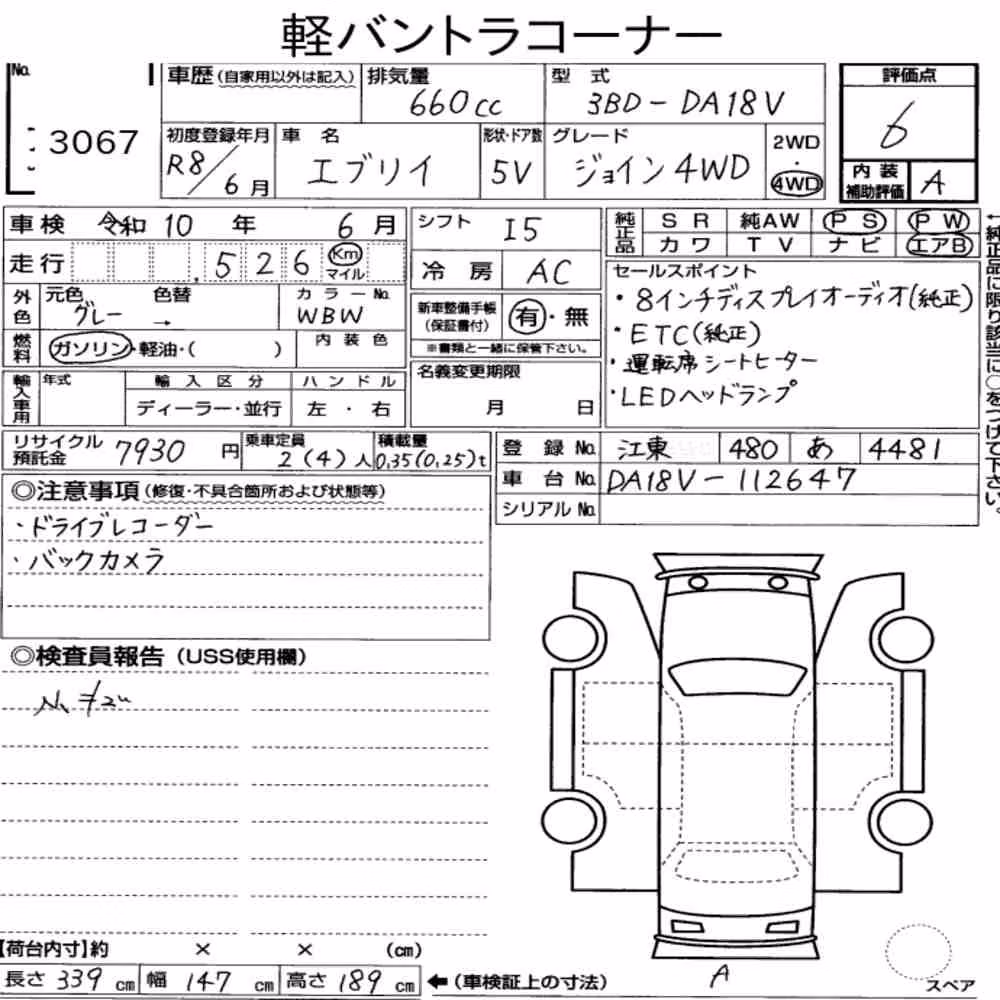 軽バントラコーナー
No. 3067
車歴(自家用以外は記入) 排気量 660cc 型式 3BD-DA18V
評価点 6
初度登録年月 R8/6月 車名 エブリイ 形状・ドア数 5V グレード ジョイン4WD 2WD・4WD
内装補助評価 A
車検 令和10年 6月
走行 .526 Km マイル
外色 元色 グレー 色替 → カラーNo. WBW
内装色
燃料 ガソリン・軽油・( )
輸入車用 年式 輸入区分 ディーラー・並行 ハンドル 左・右
シフト I5
冷房 AC
新車整備手帳(保証書付) 有・無
※書類と一緒に保管下さい。
名義変更期限 月 日
純正品 SR 純AW PS PW
カワ TV ナビ エアB
セールスポイント
・8インチディスプレイオーディオ(純正)
・ETC(純正)
・運転席シートヒーター
・LEDヘッドランプ
←純正品に限り該当に○をつけて下さい。
リサイクル預託金 7930円 乗車定員 2(4)人 積載量 0.35(0.25)t
登録No. 江東 480 あ 4481
車台No. DA18V-112647
シリアルNo.
◎注意事項(修復・不具合箇所および状態等)
・ドライブレコーダー
・バックカメラ
◎検査員報告(USS使用欄)
【荷台内寸】約 × × (cm)
長さ 339cm 幅 147cm 高さ 189cm ←(車検証上の寸法)
A
スペア